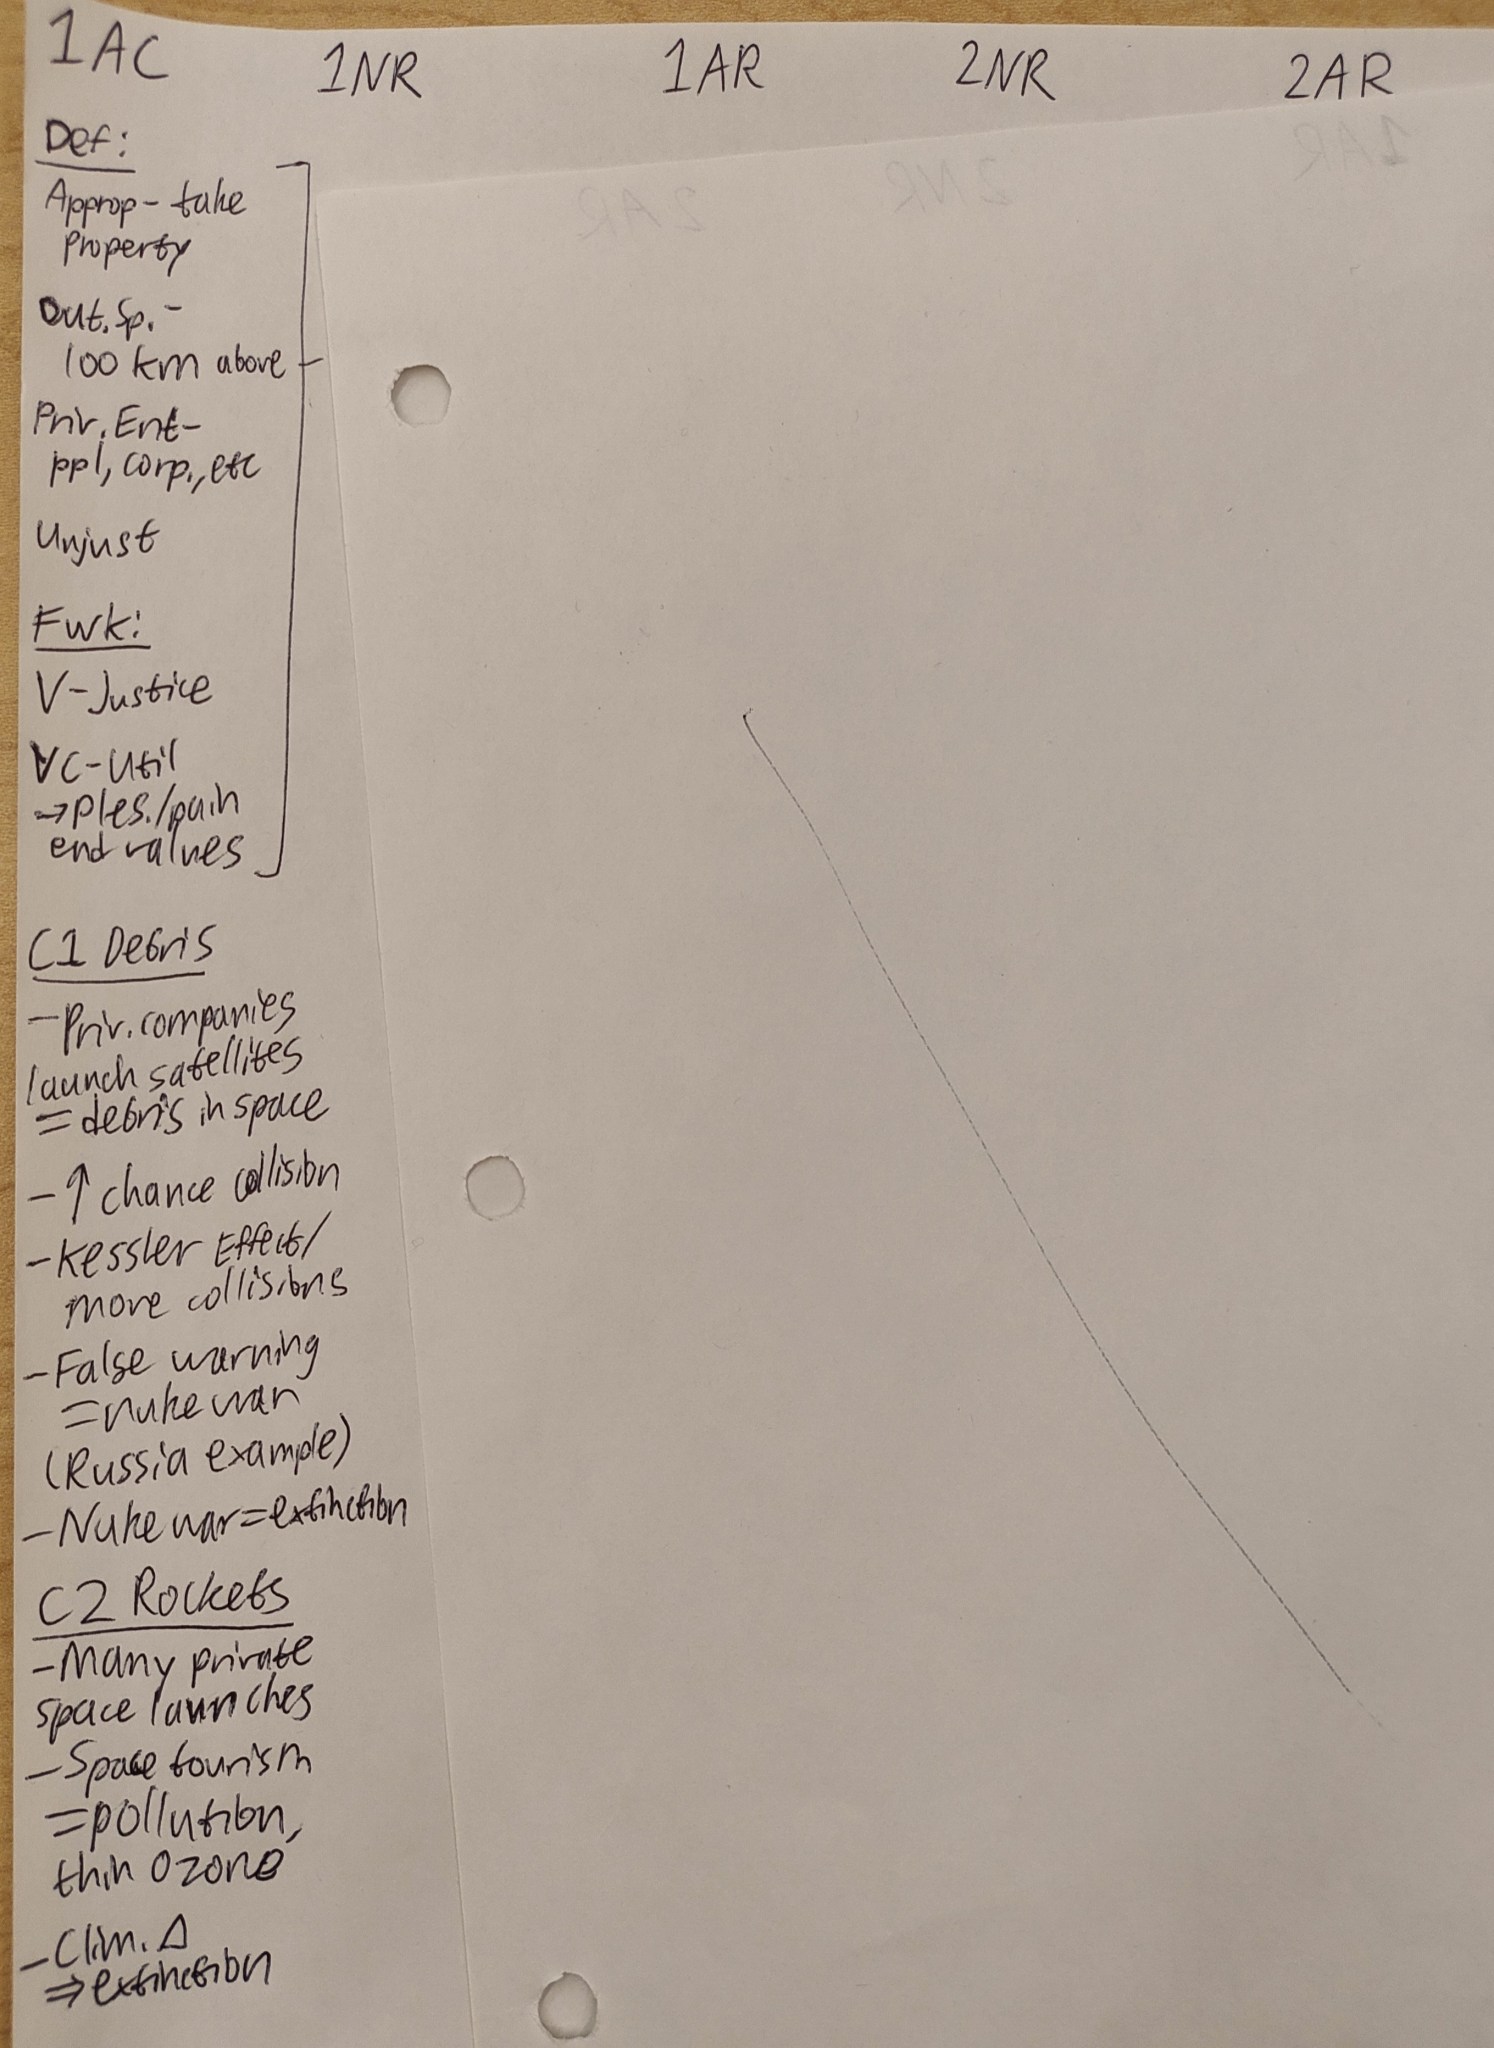 1AC 1NR 1AR 2NR 2AR
Def:
Approp - take
property
Out. Sp. -
100 km above
Priv. Ent -
ppl, corp., etc
Unjust
Fwk:
V - Justice
VC - Util
→ Ples./pain
end values
C1 Debris
- Priv. companies
launch satellites
= debris in space
- ↑ chance collision
- Kessler Effect/
more collisions
- False warning
= nuke war
(Russia example)
- Nuke war = extinction
C2 Rockets
- Many private
space launches
- Space tourism
= pollution,
thin ozone
- Clim. Δ
⇒ extinction
2AR 2NR 1AR